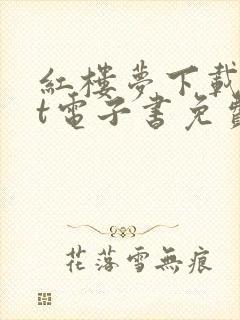 紅樓夢下載
t電子書免費
花落雪無痕